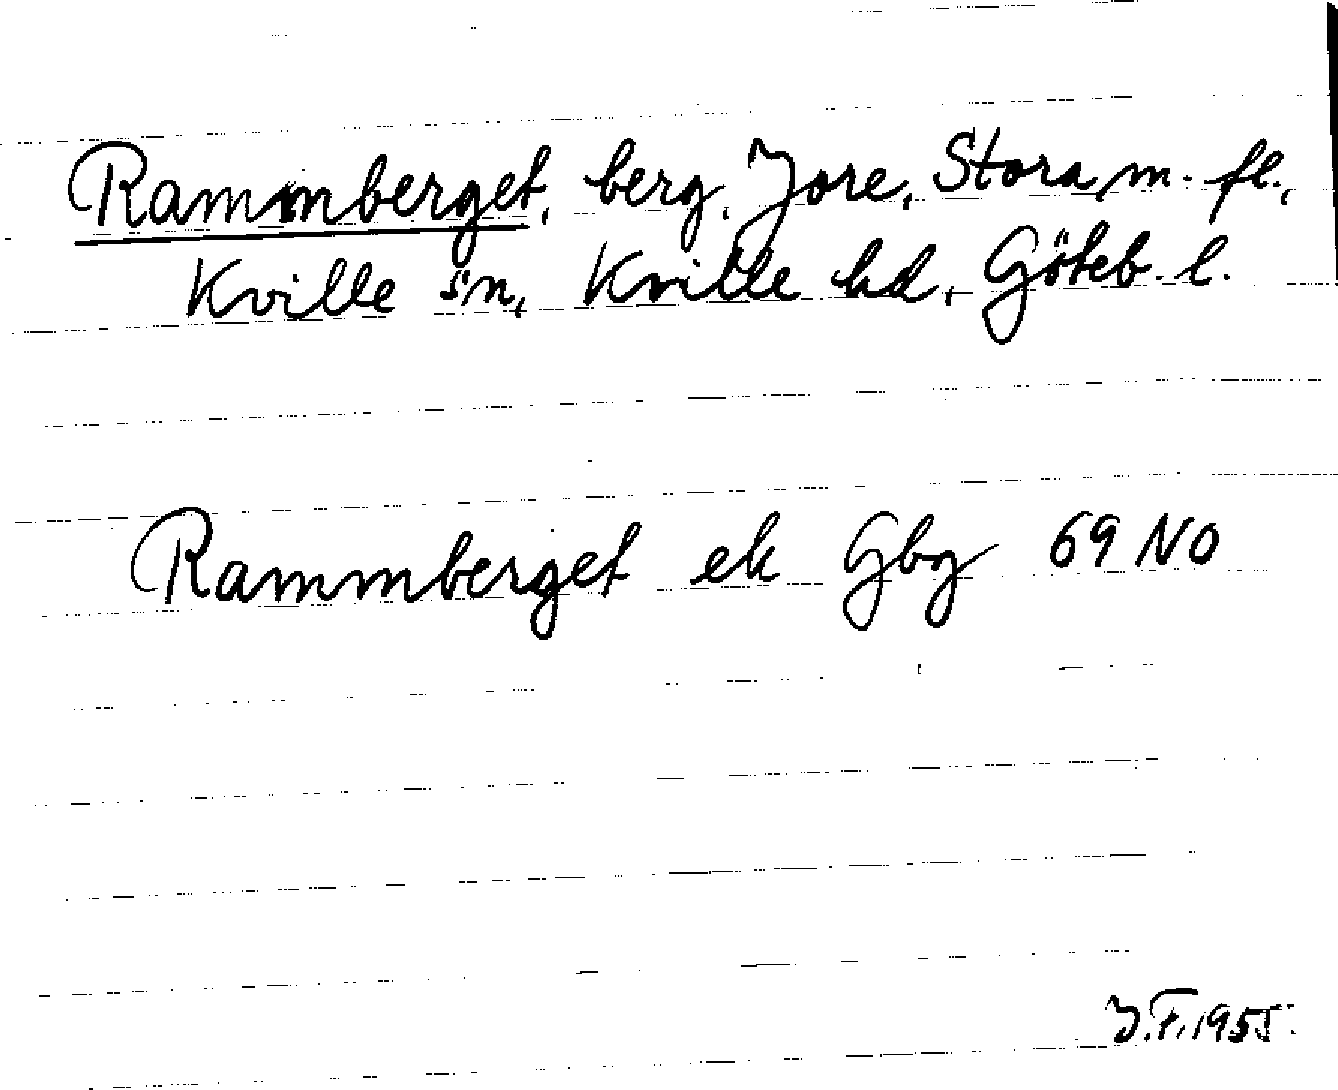 Rammberget, berg, Jore, Stora m. fl.,
Kville sn, Kville hd, Göteb. l.
Rammberget ek Gbg 69 NO
J.F. 1955.